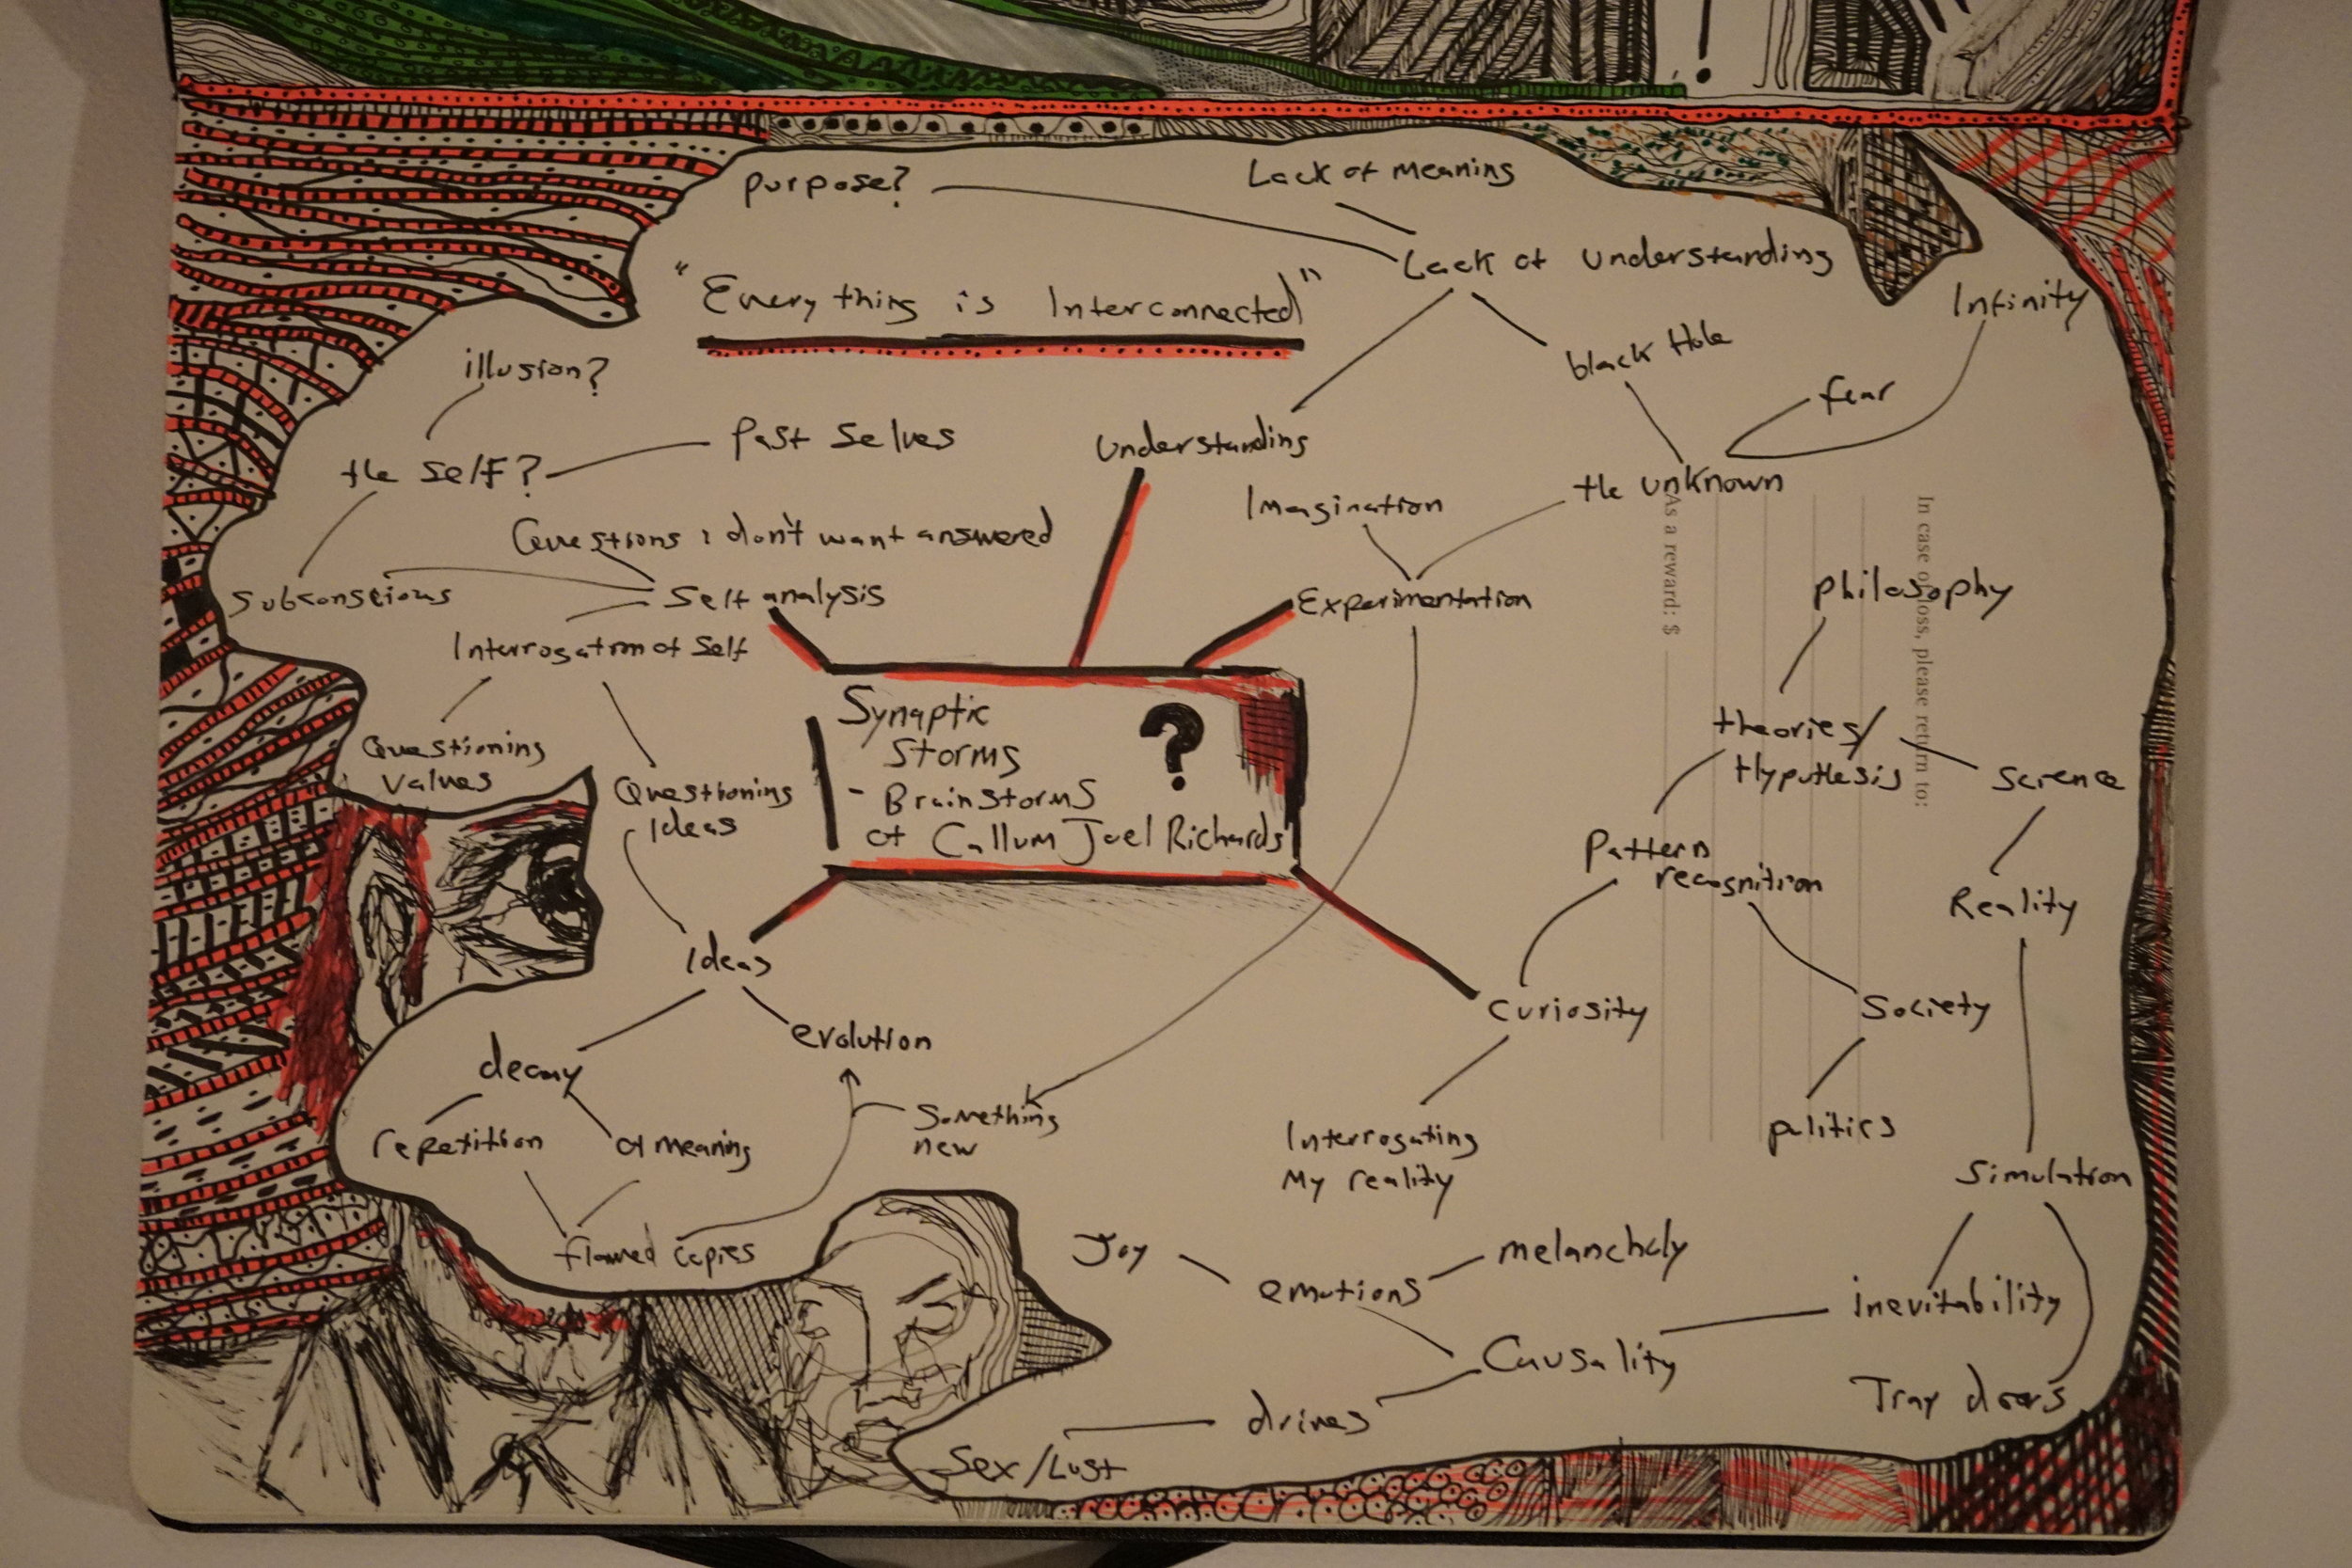 purpose?
Lack of meaning
Lack of understanding
"Everything is Interconnected"
Infinity
black Hole
fear
illusion?
Past Selves
Understanding
the Self?
the unknown
Imagination
Questions i don't want answered
Subconscious
Self analysis
Experimentation
philosophy
Interrogation of Self
In case of loss, please return to:
As a reward: $
Synaptic
Storms
- Brainstorms
of Callum Joel Richards
?
theories/
Hypothesis
Science
Questioning
values
Questioning
Ideas
Pattern
recognition
Reality
Ideas
Curiosity
Society
evolution
decay
Something
new
repetition
of meaning
Interrogating
My reality
politics
Simulation
flawed copies
Joy
melancholy
emotions
inevitability
Causality
Trap doors
drives
Sex/Lust